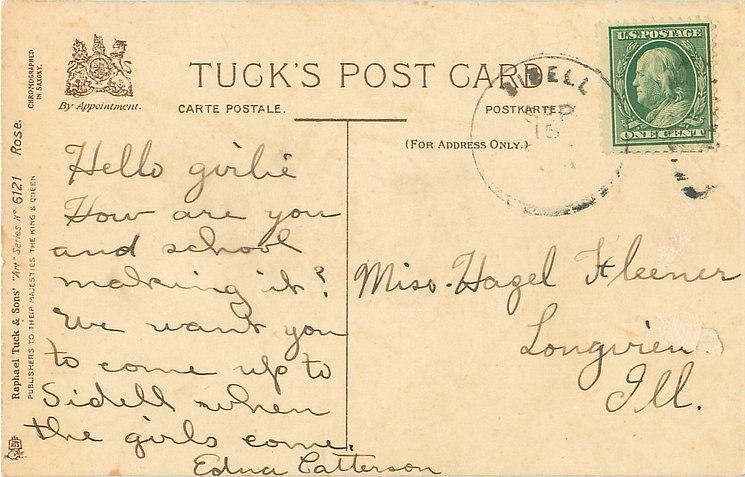 TUCK'S POST CARD
CARTE POSTALE.
POSTKARTE.
(FOR ADDRESS ONLY.)
By Appointment.
CHROMOGRAPHED
IN SAXONY.
Raphael Tuck & Sons' "Art" Series No 6121 Rose.
PUBLISHERS TO THEIR MAJESTIES THE KING & QUEEN
SIDELL
SEP
15
U.S. POSTAGE
ONE CENT
Hello girlie
How are you
and school
making it?
We want you
to come up to
Sidell when
the girls come.
Edna Catterson
Miss. Hazel Fleener
Longview
Ill.